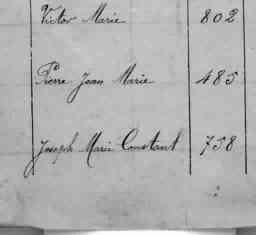 Victor Marie 802
Pierre Jean Marie 485
Joseph Marie Constant 758